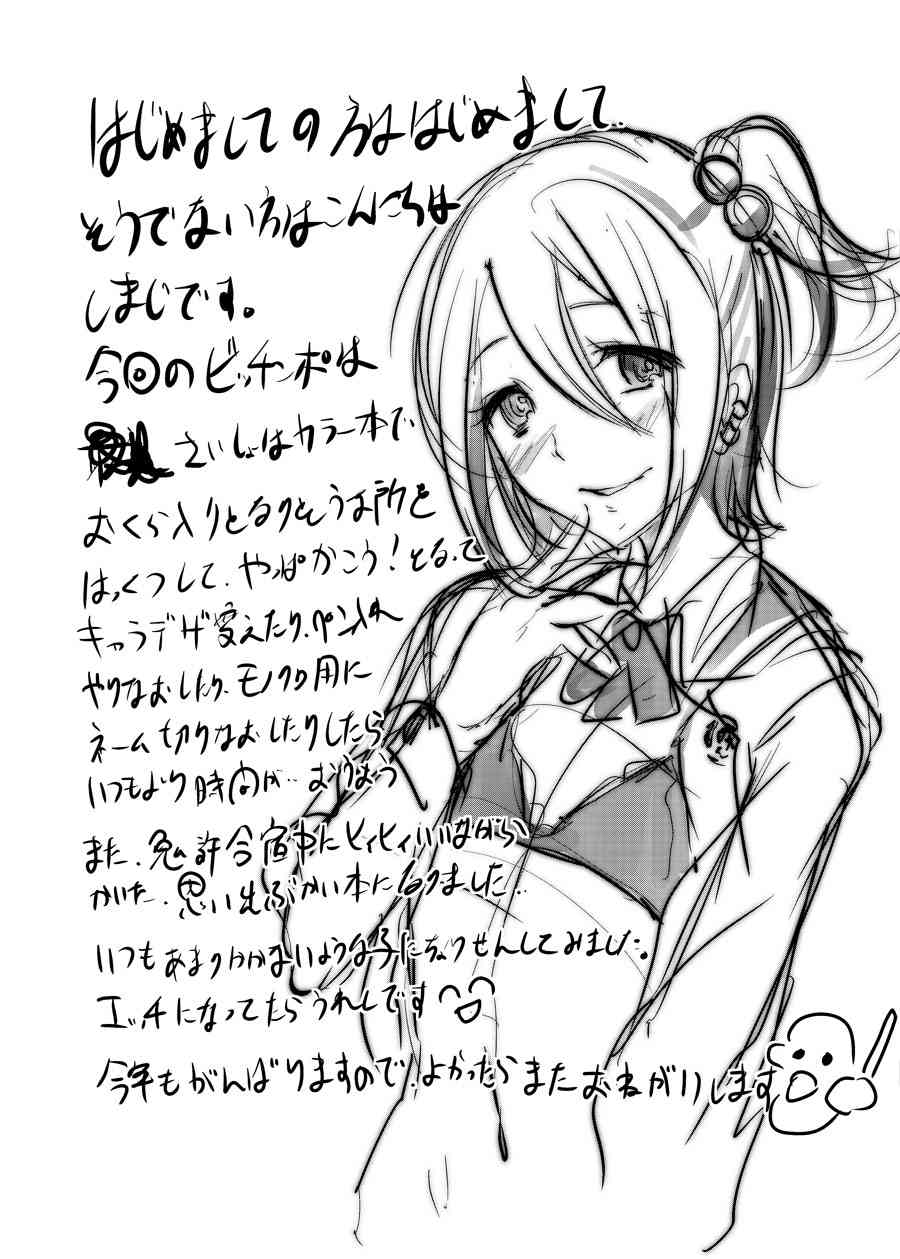 はじめましての方ははじめまして..
そうでない方はこんにちは
しまじです。
今回のビッチンポは
さいしょはカラー本で
おくら入りとなりそうな所を
はっくつして、やっぱかこう!となって
キャラデザ変えたり、ペン入れ
やりなおしたり、モノクロ用に
ネーム切りなおしたりしたら
いつもより時間が‥
また、免許合宿中にヒィヒィいいながら
かいた、思い出ぶかい本になりました‥
いつもあまりかかないような子にちょうせんしてみました。
エッチになってたらうれしいです
今年もがんばりますので、よかったらまたおねがいします